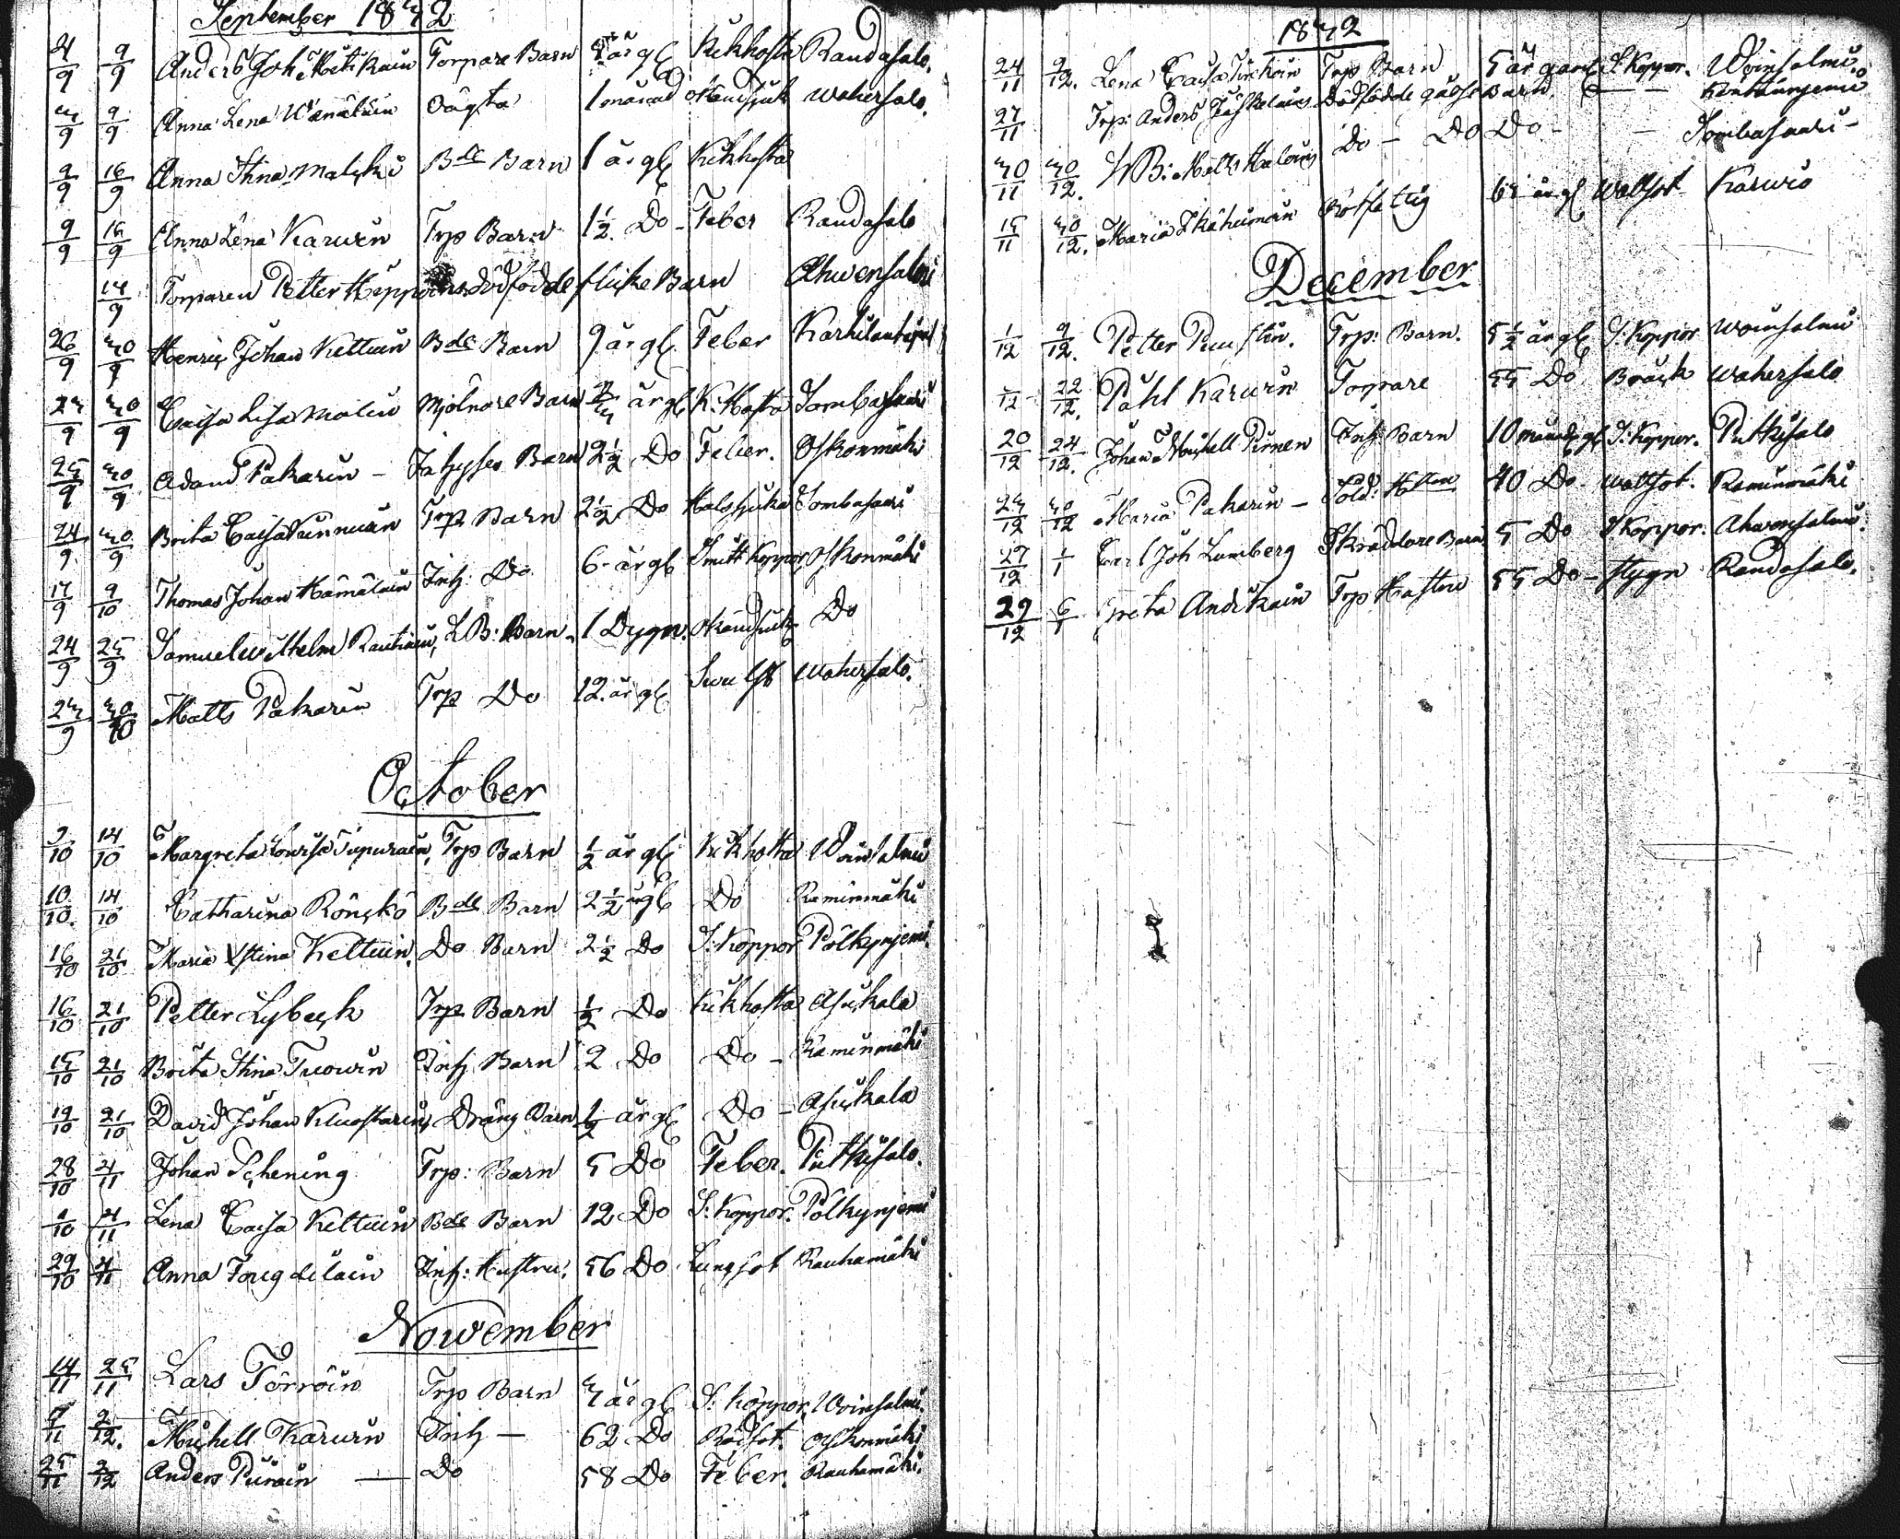 September 1832
4/9 9/9 Anders Joh: Matikain Torpare Barn år gl Kikhosta Randasalo.
3/9 9/9 Anna Lena Oägta 1 månad okändsjuk Wahersalo.
9/9 16/9 Anna Stina Malski Bde Barn 1 år gl Kikhosta
9/9 16/9 Anna Lena Karwen Trp Barn 1 1/2 Do - Feber Randasalo
14/9 Torparen Petter Dödfödde flicke Barn Ahwensalmi
26/9 30/9 Henric Johan Kettuin Bde Barn 9 år gl Feber
23/9 30/9 Caisa Lisa Malin Mjölnare Barn 3/4 år gl K:Hosta Sombasaari
25/9 30/9 Adam Pakarin - Barn 2 1/2 Do Feber. Oskonmäki
24/9 30/9 Brita Caisa Trp Barn 2 1/2 Do Halssjuka Sombasaari
17/9 9/10 Thomas Johan Hämäläin Inh: Do 6 år gl Smitt Koppor Oskonmäki
24/9 25/9 Samuel Wilhelm Rautiain, L B: Barn 1 Dygn. Okändsjuk Do
23/9 30/10 Matts Pakarin Trp Do 12 år gl Swulst Wahersalo.
October
9/10 14/10 Margreta Lowisa Tiepurain, Trp Barn 1/2 år gl Kikhosta Woinsalmi
10/10 14/10 Catharina Rönckö Bde Barn 2 1/2 år gl Do Raminmäki
16/10 21/10 Maria Stina Kettuin. Do Barn 2 1/2 Do S: Koppor Pölkynjemi
16/10 21/10 Petter Lybeck Trp Barn 1/2 Do Kikhosta Asickala
15/10 21/10 Brita Stina Inh Barn 2 Do Do - Raminmäki
19/10 21/10 David Johan Kluostarin, Dräng Barn 1/2 år gl Do - Asickala
28/10 4/11 Johan Schening Trp: Barn 5 Do Feber. Putkisalo.
1/10 4/11 Lena Caisa Kettuin Bde Barn 12 Do S: Koppor. Pölkynjemi
29/10 4/11 Anna Inh: Hustru. 56 Do Lungsot Rauhamäki
Nowember
14/11 25/11 Lars Törröin Trp Barn 3 år gl S: Koppor. Woinsalmi.
5/11 2/12. Michell Karwin Inh - 62 Do Rödsot. Oskonmäki
25/11 2/12 Anders Puroin - Do 58 Do Feber. Rauhamäki.
1832
24/11 2/12. Lena Caisa Trp Barn 5 år gaml S Koppor. Woinsalmi.
27/11 Trp: Anders Dödfödde gåsse Barn
30/11 30/12. Do - Do Do - Sombasaari -
15/11 30/12. Maria Ikäheimoin 63 år gl Wattsot Karwio
December
1/12 9/12. Petter Puustin. Trp: Barn. 5 1/2 år gl S: Koppor Woinsalmi
/12 22/12. Påhl Karwin Torpare 55 Do Bråck Wahersalo
20/12 24/12. Johan Michell Pirnen Inh: Barn 10 månad gl S: Koppor. Putkisalo
23/12 30/12 Maria Pakarin - Sold: 40 Do Wattsot. Raminmäki
27/12 1/1 Carl Joh Lumberg Skräddare Barn 5 Do S Koppor. Ahwensalmi.
29/12 6/1 Greta Andikain Trp Hustru 55 Do - Stygn Randasalo.